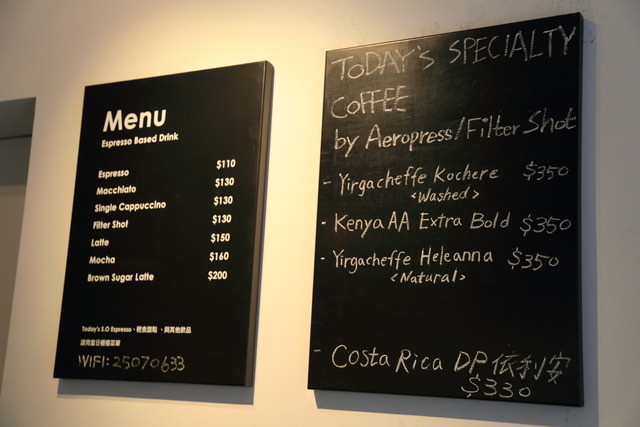 Menu
Espresso Based Drink
Espresso $110
Macchiato $130
Single Cappuccino $130
Filter Shot $130
Latte $150
Mocha $160
Brown Sugar Latte $200
Today's S.O Espresso、輕食甜點、與其他飲品
請見當日櫃檯菜單
WIFI: 25070633
TODAY'S SPECIALTY
COFFEE
by Aeropress/Filter Shot
- Yirgacheffe Kochere $350
<Washed>
- Kenya AA Extra Bold $350
- Yirgacheffe Heleanna $350
<Natural>
- Costa Rica DP 依利安
$330